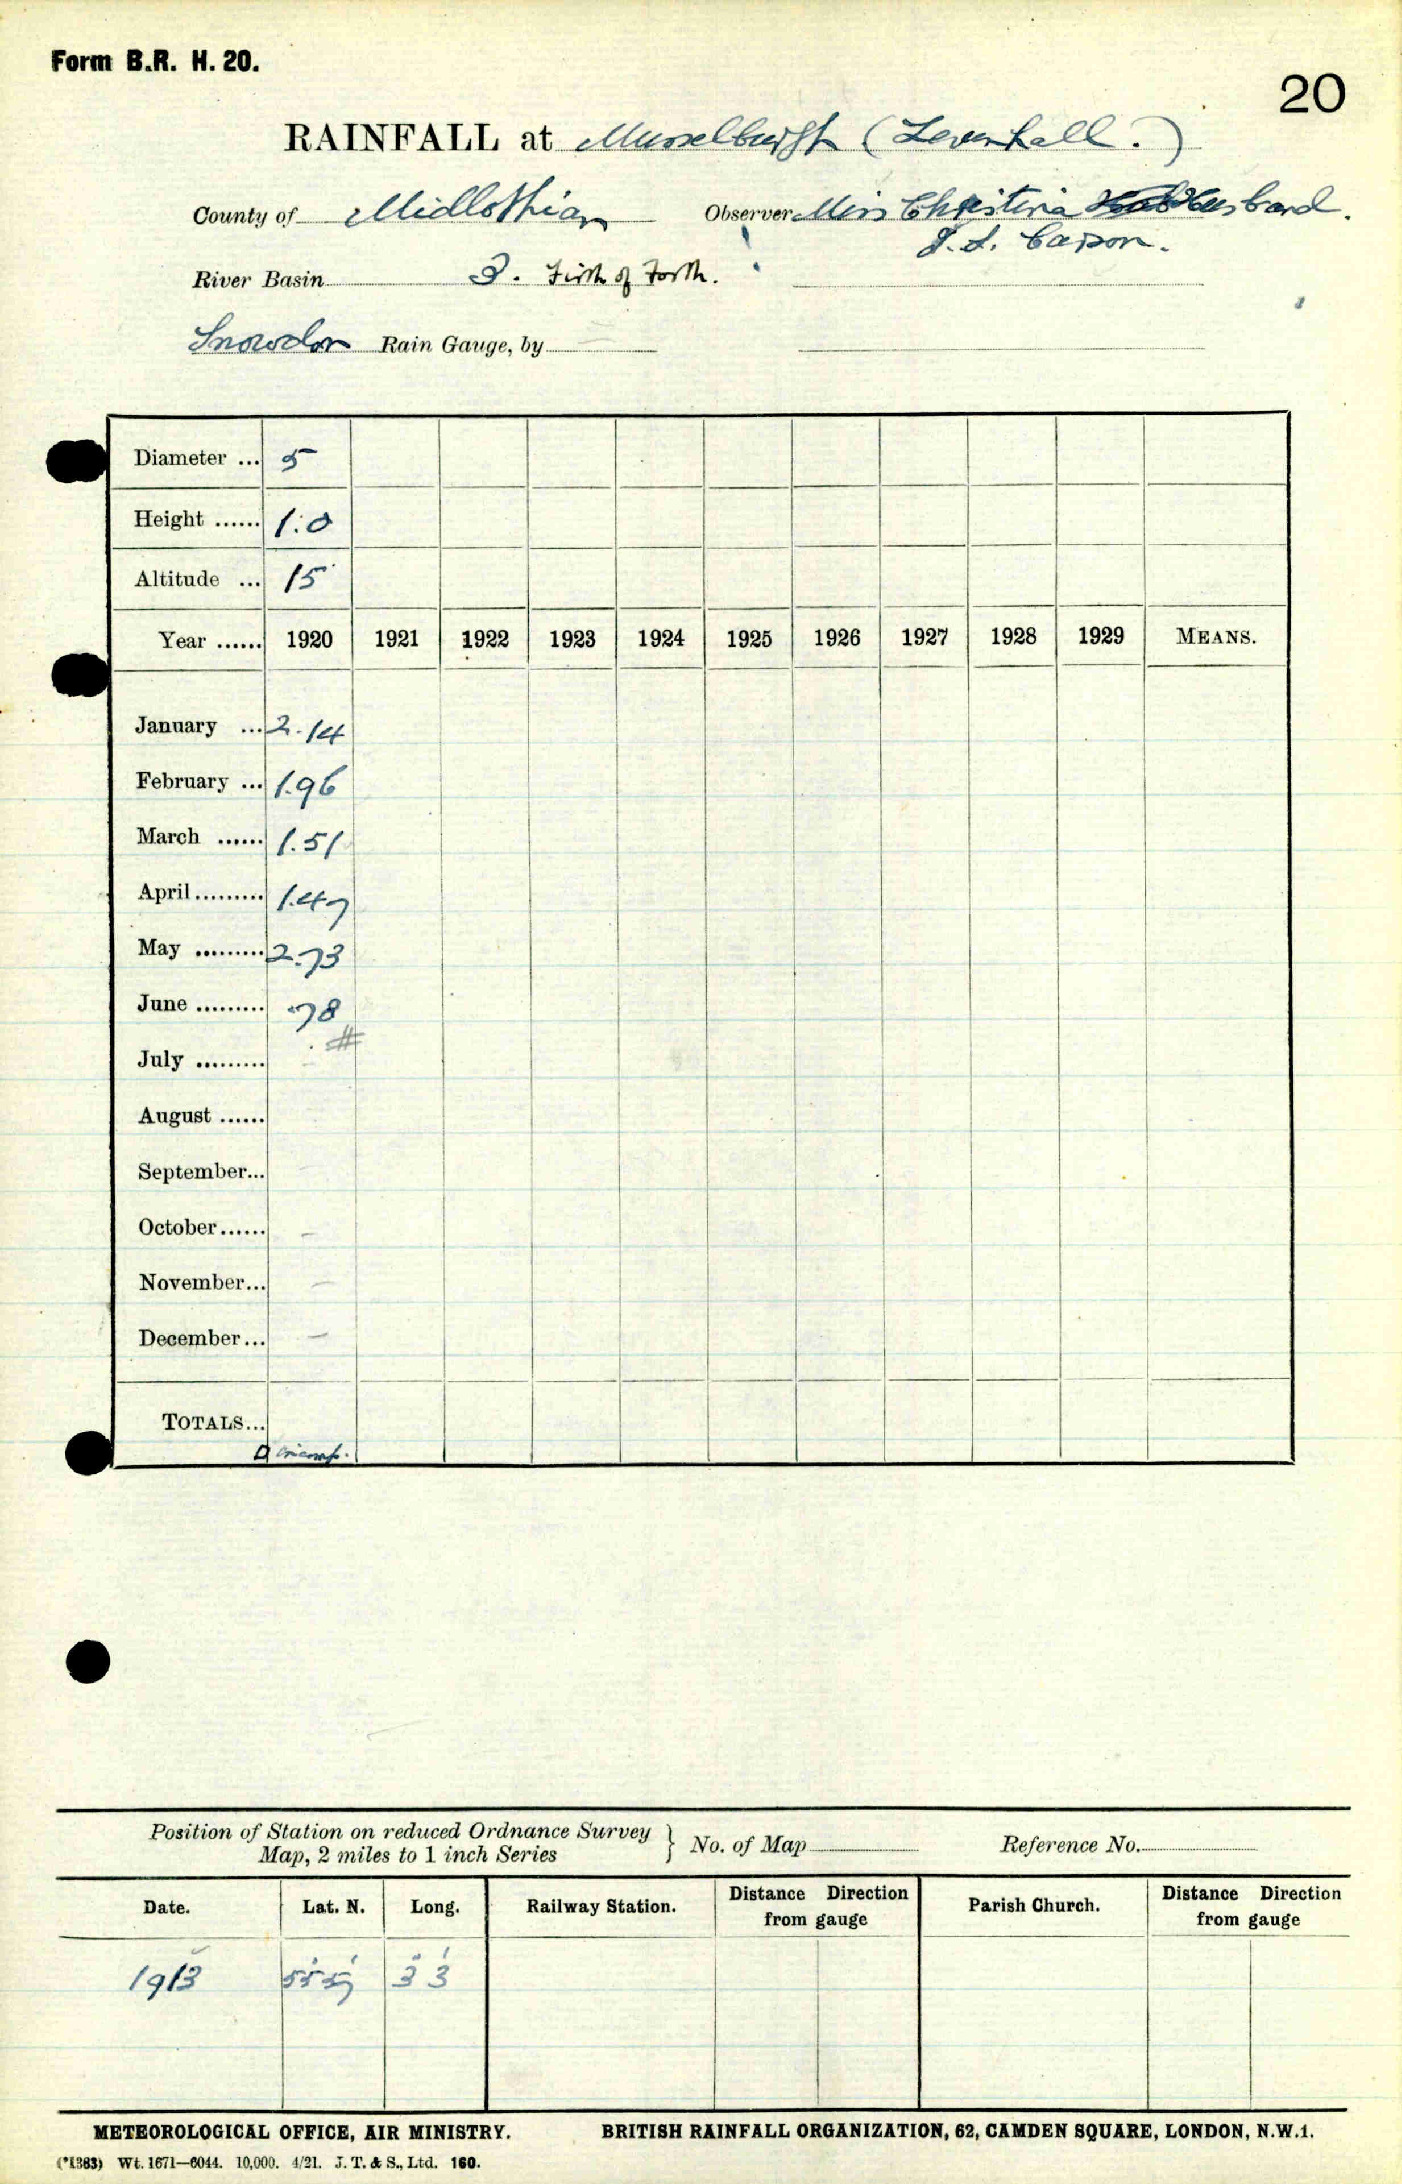 Form B.R. H. 20.
20
RAINFALL at Musselburgh (Levenhall.)
County of Midlothian Observer Miss Christina Husband.
River Basin 3. Firth of Forth.
Snowdon Rain Gauge, by
Diameter ... 5
Height ...... 1.0
Altitude ... 15
Year ...... 1920 1921 1922 1923 1924 1925 1926 1927 1928 1929 MEANS.
January ... 2.14
February ... 1.96
March ...... 1.51
April ......... 1.47
May ......... 2.73
June ......... .78
#
July .........
August ......
September...
October...... –
November... –
December... –
TOTALS...
Position of Station on reduced Ordnance Survey
Map, 2 miles to 1 inch Series } No. of Map Reference No.
Date. Lat. N. Long. Railway Station. Distance Direction from gauge Parish Church. Distance Direction from gauge
1913 55° 57' 3° 3'
METEOROLOGICAL OFFICE, AIR MINISTRY. BRITISH RAINFALL ORGANIZATION, 62, CAMDEN SQUARE, LONDON, N.W.1.
(*1383) Wt. 1671—6044. 10,000. 4/21. J. T. & S., Ltd. 160.